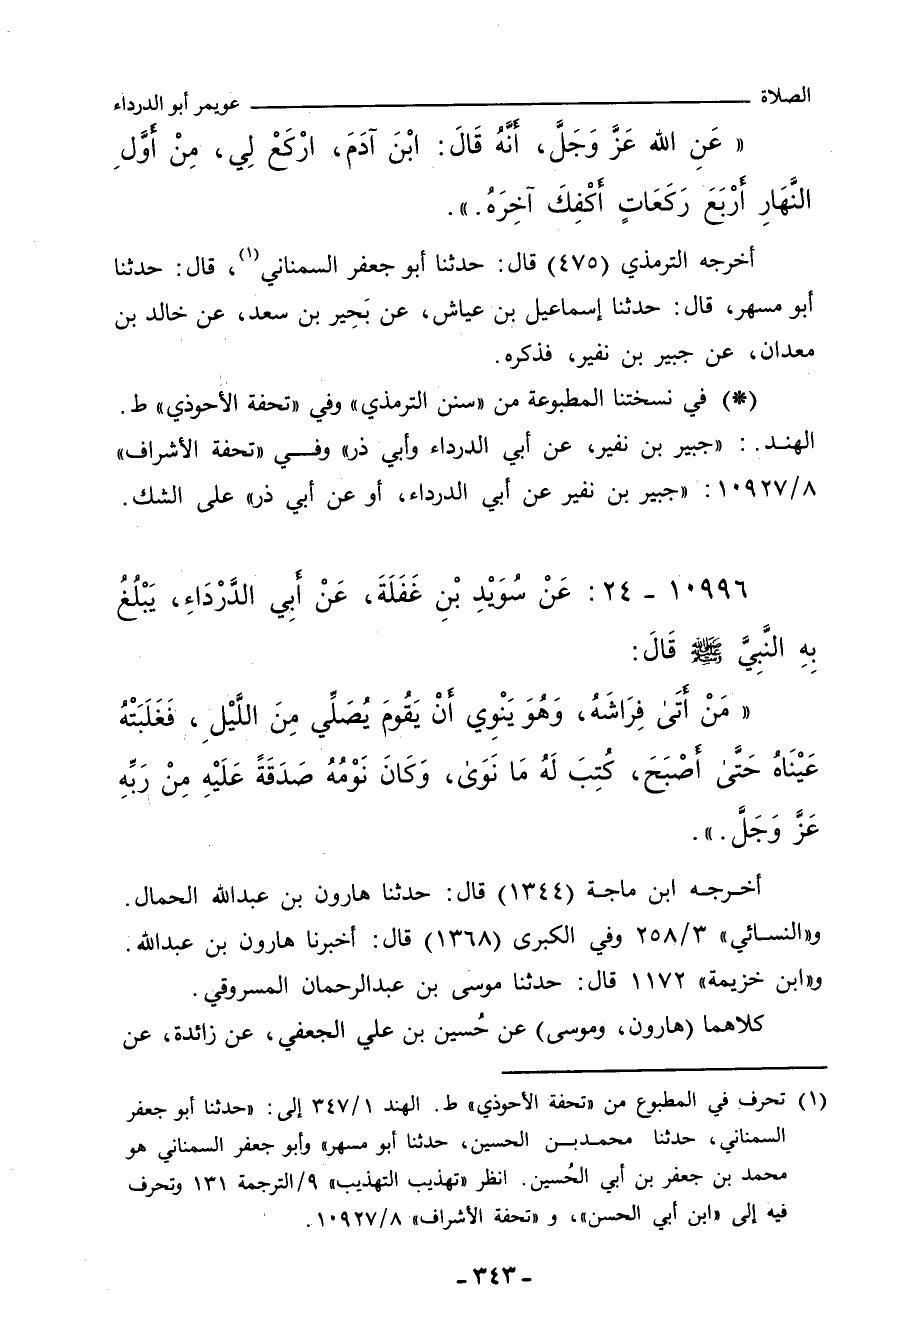 الصلاة ــــــــــــــــ عويمر أبو الدرداء
« عَنِ الله عَزَّ وَجَلَّ، أَنَّهُ قَالَ: ابْنَ آدَمَ، ارْكَعْ لِي، مِنْ أَوَّلِ
النَّهَارِ أَرْبَعَ رَكَعَاتٍ أَكْفِكَ آخِرَهُ.».
أخرجه الترمذي (٤٧٥) قال: حدثنا أبو جعفر السمناني(١)، قال: حدثنا
أبو مسهر، قال: حدثنا إسماعيل بن عياش، عن بَحِير بن سعد، عن خالد بن
معدان، عن جبير بن نفير، فذكره.
(*) في نسختنا المطبوعة من «سنن الترمذي» وفي «تحفة الأحوذي» ط.
الهند.: «جبير بن نفير، عن أبي الدرداء وأبي ذر» وفـــي «تحفة الأشراف»
١٠٩٢٧/٨: «جبير بن نفير عن أبي الدرداء، أو عن أبي ذر» على الشك.
١٠٩٩٦ - ٢٤: عَنْ سُوَيْدِ بْنِ غَفَلَةَ، عَنْ أَبِي الدَّرْدَاءِ، يَبْلُغُ
بِهِ النَّبِيَّ ﷺ قَالَ:
« مَنْ أَتَىٰ فِرَاشَهُ، وَهُوَ يَنْوِي أَنْ يَقُومَ يُصَلِّي مِنَ اللَّيْلِ، فَغَلَبَتْهُ
عَيْنَاهُ حَتَّىٰ أَصْبَحَ، كُتِبَ لَهُ مَا نَوَىٰ، وَكَانَ نَوْمُهُ صَدَقَةً عَلَيْهِ مِنْ رَبِّهِ
عَزَّ وَجَلَّ.».
أخـرجـه ابن ماجة (١٣٤٤) قال: حدثنا هارون بن عبدالله الحمال.
و«النسـائي» ٢٥٨/٣ وفي الكبرى (١٣٦٨) قال: أخبرنا هارون بن عبدالله.
و«ابن خزيمة» ١١٧٢ قال: حدثنا موسى بن عبدالرحمان المسروقي.
كلاهما (هارون، وموسى) عن حُسين بن علي الجعفي، عن زائدة، عن
(١) تحرف في المطبوع من «تحفة الأحوذي» ط. الهند ٣٤٧/١ إلى: «حدثنا أبو جعفر
السمناني، حدثنا محمـدبـن الحسين، حدثنا أبو مسهر» وأبو جعفر السمناني هو
محمد بن جعفر بن أبي الحُسين. انظر «تهذيب التهذيب» ٩/الترجمة ١٣١ وتحرف
فيه إلى «ابن أبي الحسن»، و «تحفة الأشراف» ١٠٩٢٧/٨.
- ٣٤٣ -